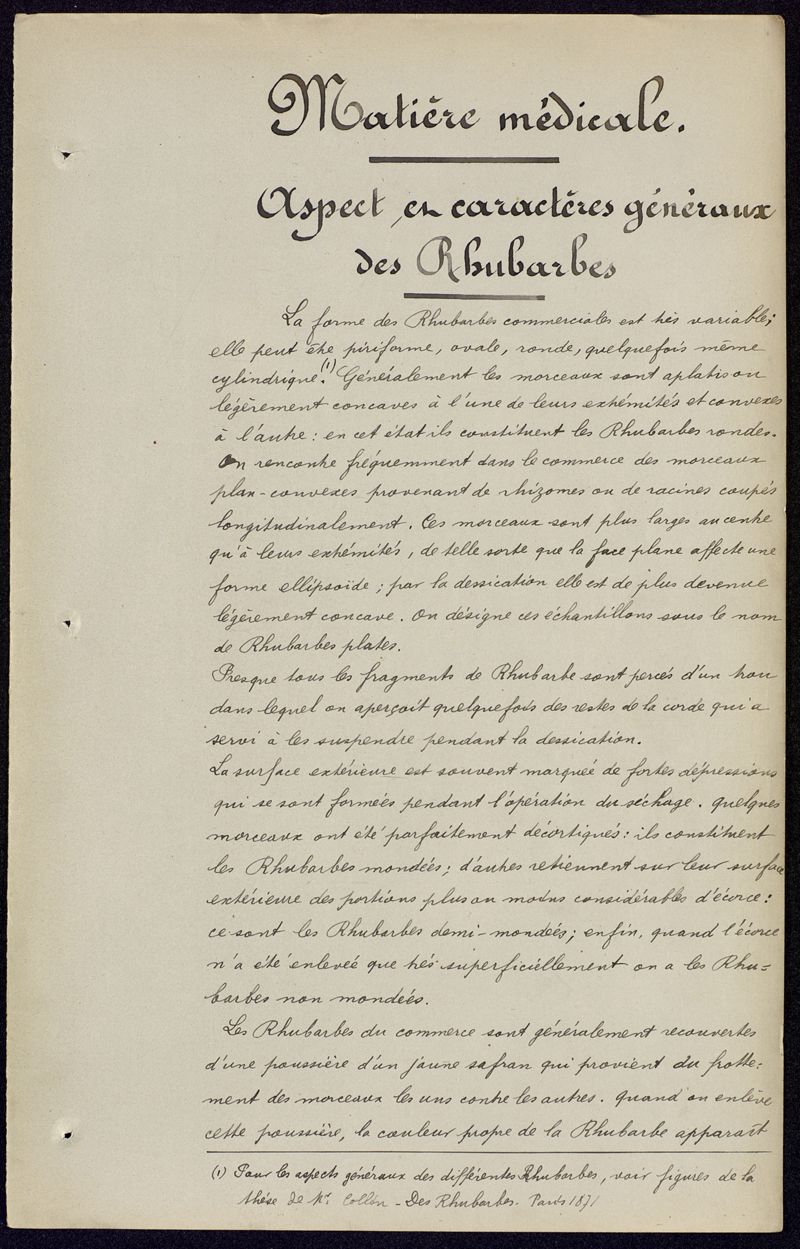 Matière médicale.
Aspect et caractères généraux
des Rhubarbes
La forme des Rhubarbes commerciales est très variable;
elle peut être piriforme, ovale, ronde, quelquefois même
cylindrique.(1) Généralement les morceaux sont aplatis ou
légèrement concaves à l'une de leurs extrémités et convexes
à l'autre : en cet état ils constituent les Rhubarbes rondes.
On rencontre fréquemment dans le commerce des morceaux
plan-convexes provenant de rhizomes ou de racines coupés
longitudinalement. Ces morceaux sont plus larges au centre
qu'à leurs extrémités, de telle sorte que la face plane affecte une
forme ellipsoïde ; par la dessication elle est de plus devenue
légèrement concave. On désigne ces échantillons sous le nom
de Rhubarbes plates.
Presque tous les fragments de Rhubarbe sont percés d'un trou
dans lequel on aperçoit quelquefois des restes de la corde qui a
servi à les suspendre pendant la dessication.
La surface extérieure est souvent marquée de fortes dépressions
qui se sont formées pendant l'opération du séchage. quelques
morceaux ont été parfaitement décortiqués : ils constituent
les Rhubarbes mondées ; d'autres retiennent sur leur surface
extérieure des portions plus ou moins considérables d'écorce :
ce sont les Rhubarbes demi-mondées ; enfin, quand l'écorce
n'a été enlevée que très superficiellement on a les Rhu=
barbes non mondées.
Les Rhubarbes du commerce sont généralement recouvertes
d'une poussière d'un jaune safran qui provient du frotte=
ment des morceaux les uns contre les autres. quand on enlève
cette poussière, la couleur propre de la Rhubarbe apparaît
(1) Pour les aspects généraux des différentes Rhubarbes, voir figures de la
thèse de Mr Collin - Des Rhubarbes. Paris 1871